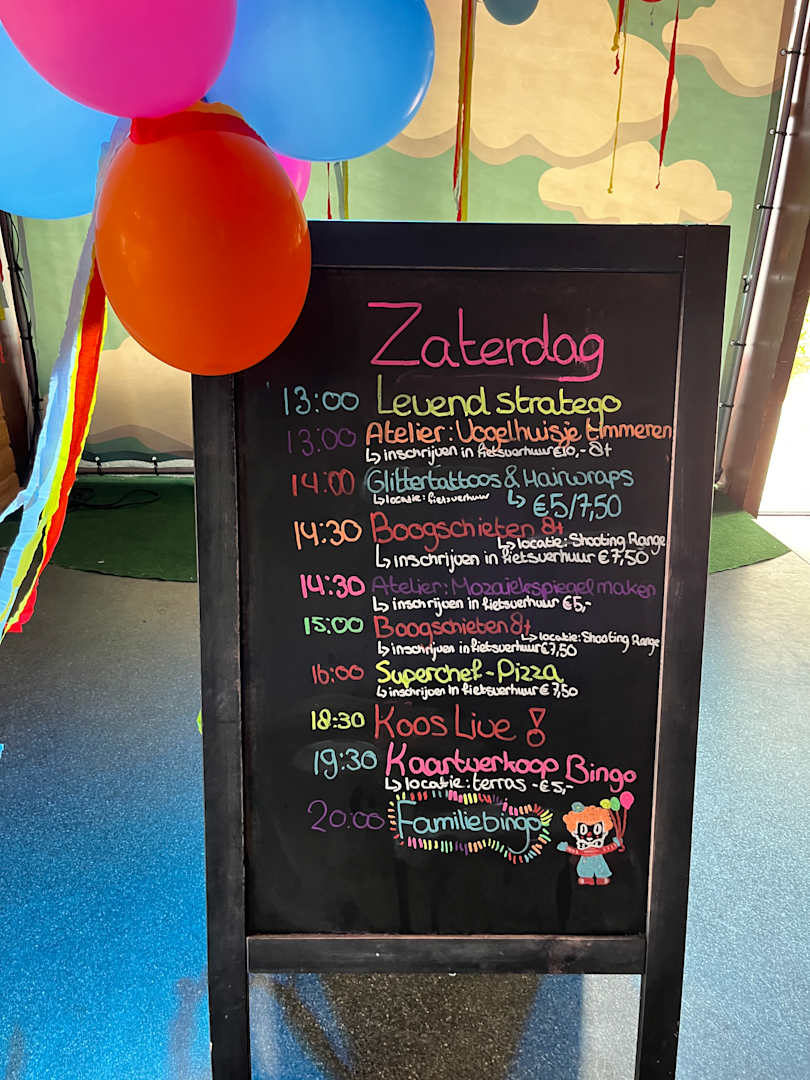 Zaterdag
13:00 Levend stratego
13:00 Atelier: Vogelhuisje timmeren
↳ inschrijven in fietsverhuur €10,- 8+
14:00 Glittertattoos & Hairwraps
↳ locatie: fietsverhuur ↳ €5/7,50
14:30 Boogschieten 8+
↳ locatie: Shooting Range
↳ inschrijven in fietsverhuur €7,50
14:30 Atelier: Mozaïekspiegel maken
↳ inschrijven in fietsverhuur €5,-
15:00 Boogschieten 8+
↳ locatie: Shooting Range
↳ inschrijven in fietsverhuur €7,50
16:00 Superchef - Pizza
↳ inschrijven in fietsverhuur €7,50
18:30 Koos Live !
19:30 Kaartverkoop Bingo
↳ locatie: terras - €5,-
20:00 Familiebingo